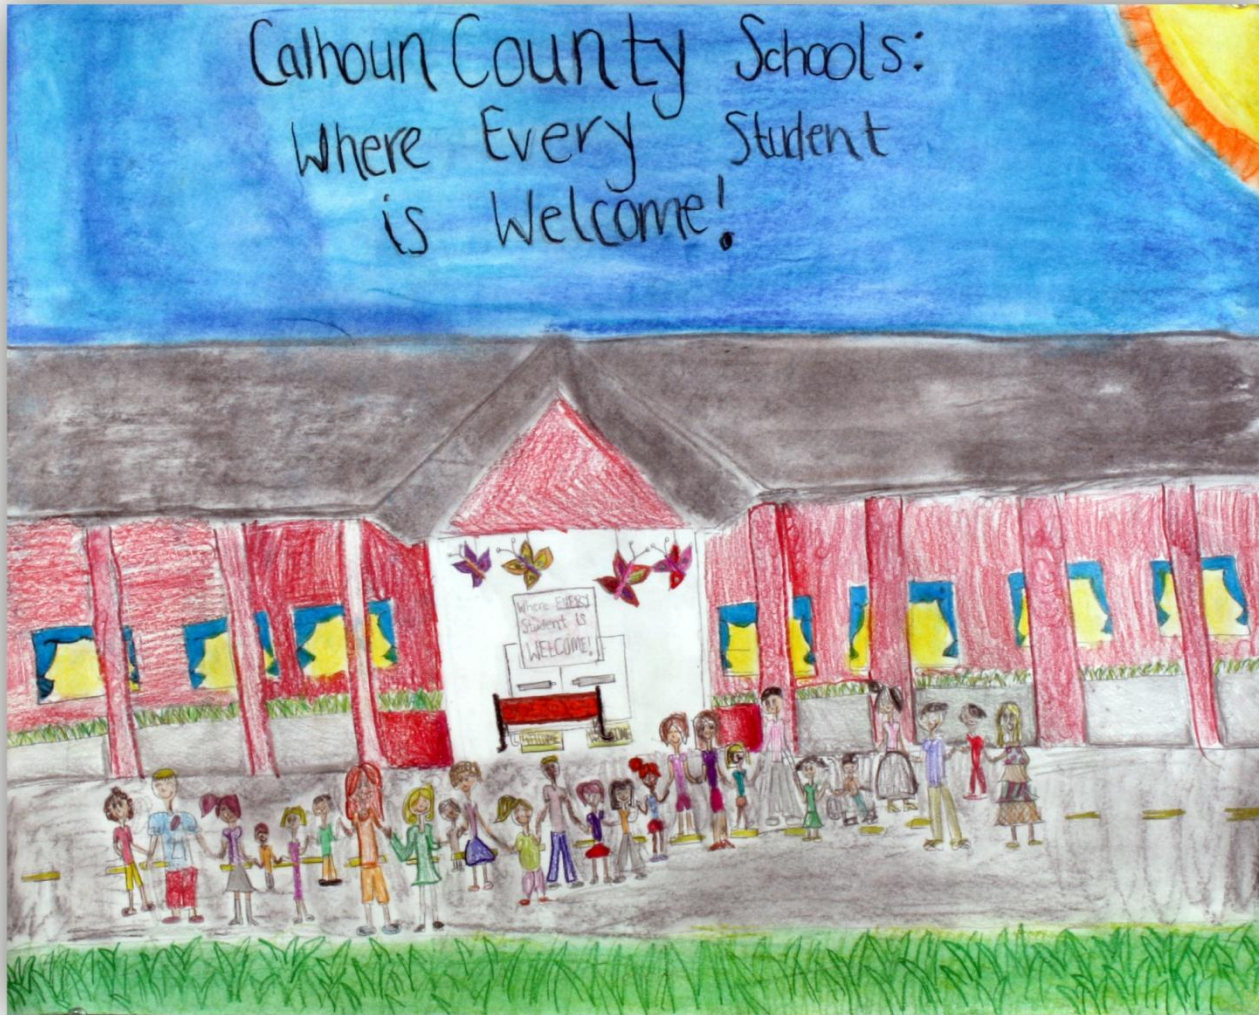 Calhoun County Schools:
Where Every Student
is Welcome!
Where EVERY
Student is
WELCOME!